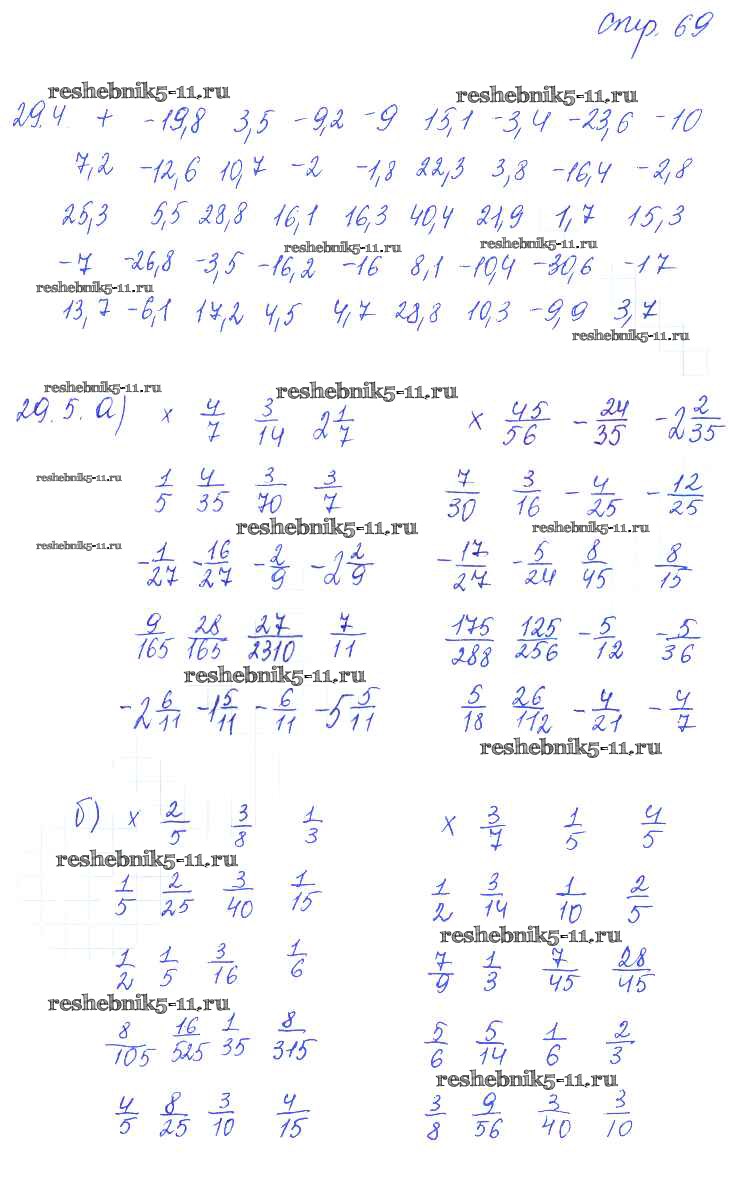 стр. 69
reshebnik5-11.ru reshebnik5-11.ru
29.4 + -19,8 3,5 -9,2 -9 15,1 -3,4 -23,6 -10
7,2 -12,6 10,7 -2 -1,8 22,3 3,8 -16,4 -2,8
25,3 5,5 28,8 16,1 16,3 40,4 21,9 1,7 15,3
reshebnik5-11.ru reshebnik5-11.ru
-7 -26,8 -3,5 -16,2 -16 8,1 -10,4 -30,6 -17
reshebnik5-11.ru
13,7 -6,1 17,2 4,5 4,7 28,8 10,3 -9,9 3,7
reshebnik5-11.ru
reshebnik5-11.ru reshebnik5-11.ru
29.5. а) x 4/7 3/14 2 1/7 x 45/56 -24/35 -2 2/35
reshebnik5-11.ru
1/5 4/35 3/70 3/7 7/30 3/16 -4/25 -12/25
reshebnik5-11.ru reshebnik5-11.ru
reshebnik5-11.ru
-1/27 -16/27 -2/9 -2 2/9 -17/27 -5/24 8/45 8/15
9/165 28/165 27/2310 7/11 175/288 125/256 -5/12 -5/36
reshebnik5-11.ru
-2 6/11 -1 5/11 -6/11 -5 5/11 5/18 26/112 -4/21 -4/7
reshebnik5-11.ru
б) x 2/5 3/8 1/3 x 3/7 1/5 4/5
reshebnik5-11.ru
1/5 2/25 3/40 1/15 1/2 3/14 1/10 2/5
reshebnik5-11.ru
1/2 1/5 3/16 1/6 7/9 1/3 7/45 28/45
reshebnik5-11.ru
8/105 16/525 1/35 8/315 5/6 5/14 1/6 2/3
reshebnik5-11.ru
4/5 8/25 3/10 4/15 3/8 9/56 3/40 3/10